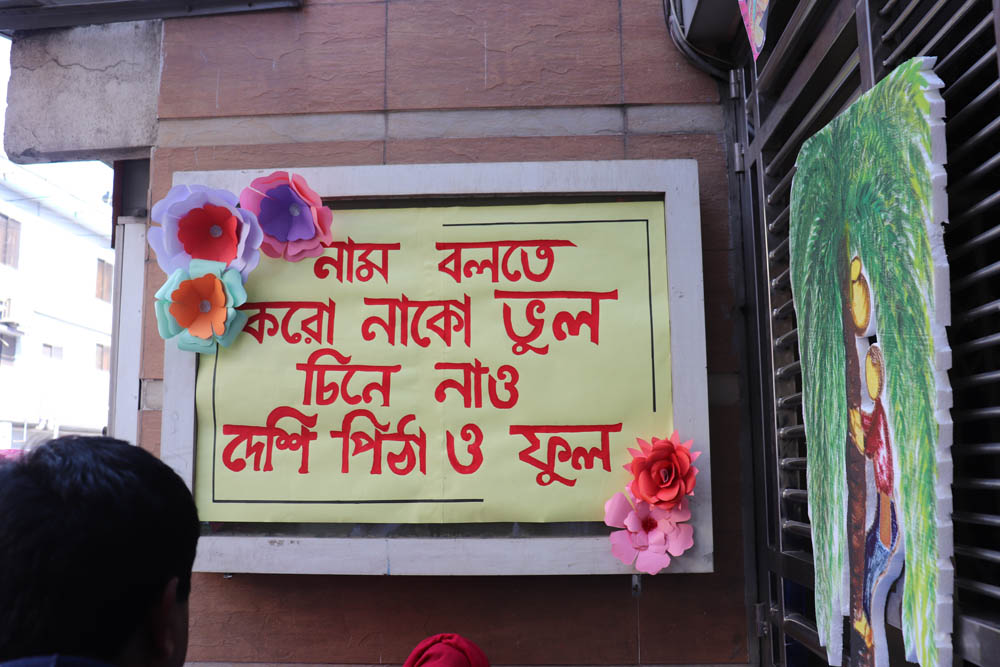 নাম বলতে
করো নাকো ভুল
চিনে নাও
দেশি পিঠা ও ফুল